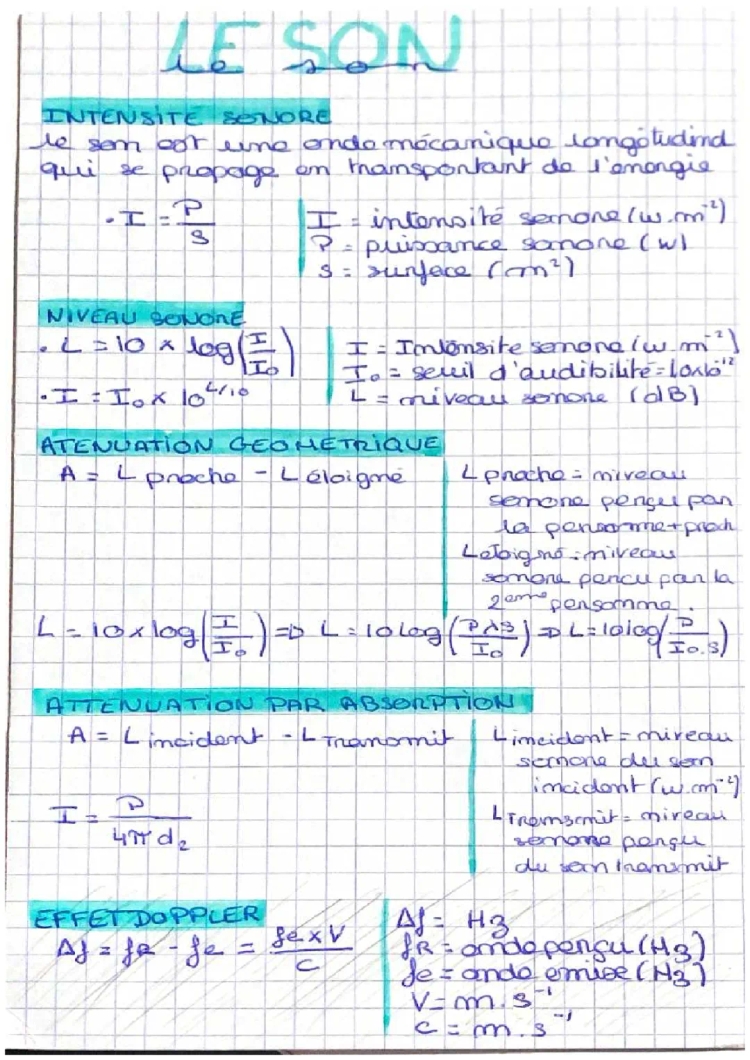 LE SON
le son
INTENSITÉ SONORE
le son est une onde mécanique longitudinal
qui se propage en transportant de l'énergie
• I = P/S
I = intensité sonore (w.m⁻²)
P = puissance sonore (w)
S = surface (m²)
NIVEAU SONORE
• L = 10 × log(I/I₀)
• I = I₀ × 10^(L/10)
I = Intensite sonore (w.m⁻²)
I₀ = seuil d'audibilité = 1,0×10⁻¹²
L = niveau sonore (dB)
ATENUATION GEOMETRIQUE
A = L proche - L éloigné
L proche = niveau
sonore perçu par
la personne + proch
L eloigné = niveau
sonore percu par la
2eme personne.
L = 10 × log(I/I₀) => L = 10 log( /I₀) => L = 10 log(P/I₀.S)
ATTENUATION PAR ABSORPTION
A = L incident - L Transmit
L incident = niveau
sonore du son
incident (w.m⁻²)
L Transmit = niveau
sonore perçu
du son transmit
I = P/4π d₂
EFFET DOPPLER
Δf = fR - fe = fe × V/c
Δf = Hz
fR = onde perçu (Hz)
fe = onde emise (Hz)
V = m.s⁻¹
c = m.s⁻¹